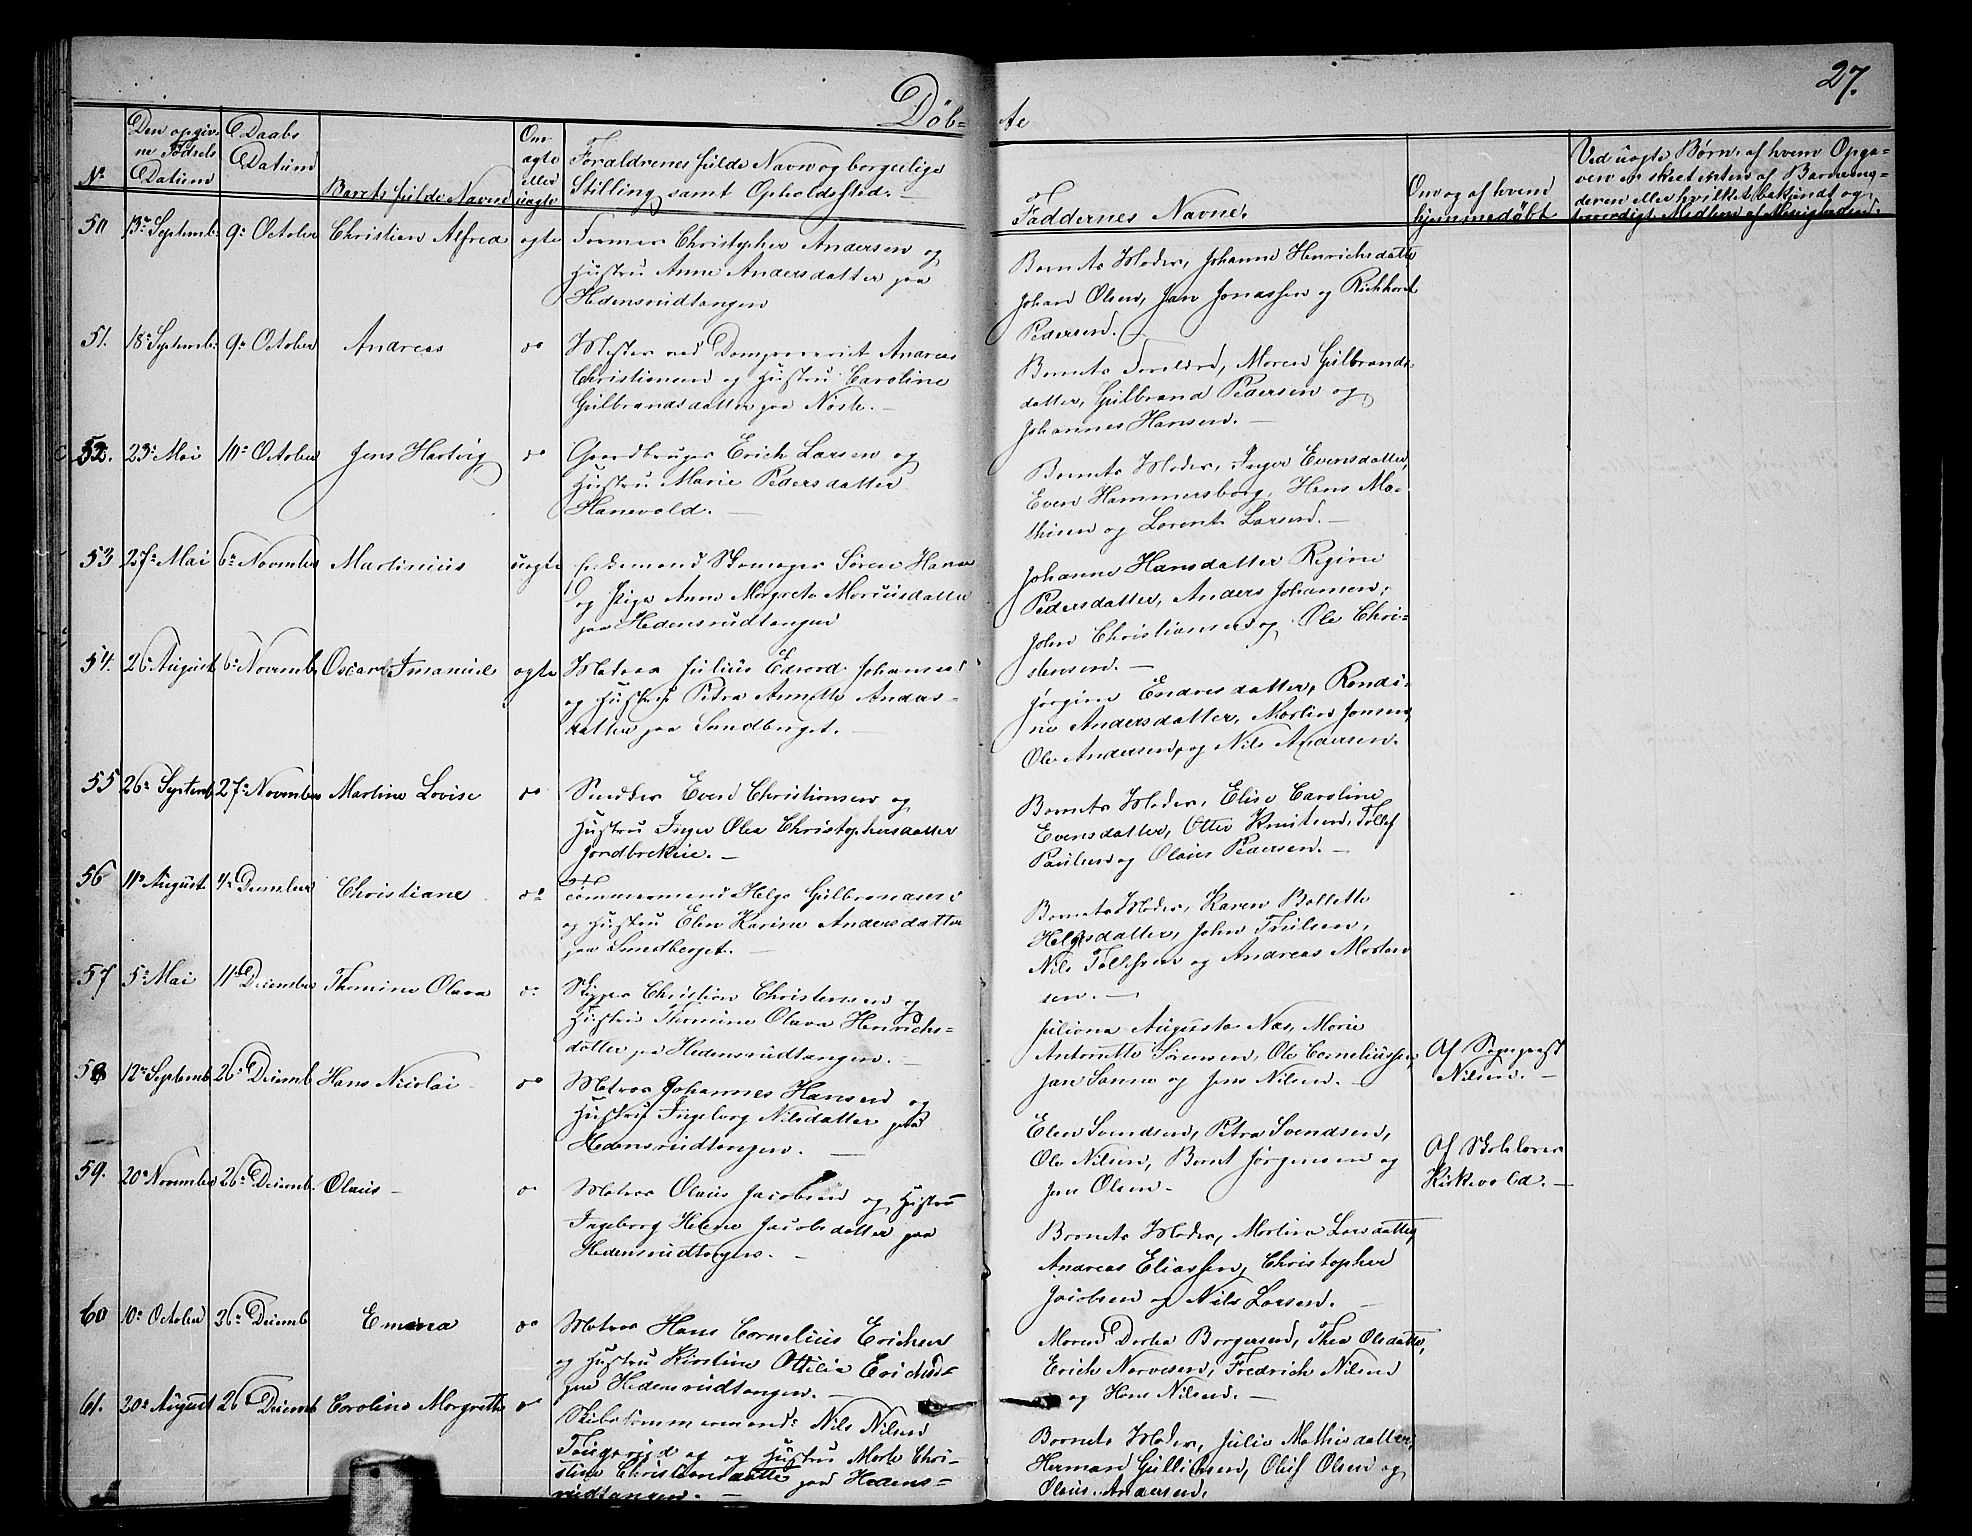 27.
Döb- te
No
Den opgiv-
ne Fødsels
Datum
Daabs
Datum
Barnets fulde Navne
Om
ægte
eller
uægte
Forældrenes fulde Navn og borgerlige
Stilling samt Opholdssted.
Faddernes Navne.
Om og af hvem
hjemmedøbt
Ved uægte Børn, af hvem Opga-
ven er skeet enten af Barnemo-
deren eller hvilket bekjendt og
troværdigt Medlem af Menigheden.
50 13de Septemb. 9de October Christian Alfred ægte Former Christopher Andersen og
Hustru Anne Andersdatter paa
Hedensrudtangen
Barnets Moder, Johanne Henrichsdatter
Johan Olsen, Jan Jonassen og Richhort
Pedersen.
51. 18de Septemb. 9de October Andreas do Mester ved Andreas
Christiansen og Hustru Caroline
Gulbrandsdatter paa Nøste.
Barnets Forældre, Maren Gulbrands-
datter, Gulbrand Pedersen og
Johannes Hansen.
52. 23de Mai 10de October Jens Hartvig do Gaardbruger Erich Larsen og
Hustru Marie Pedersdatter
Hanevold.
Barnets Moder, Inger Evensdatter,
Even Hammersborg, Hans Ma-
thisen og Lorents Larsen.
53 27de Mai 6de November Martinius uægte Skomager Søren Hansen
og Pige Anne Margrete Mariusdatter
paa Hedensrudtangen
Johanne Hansdatter Regine
Pedersdatter, Anders Johansen,
John Christiansen og Ole Chri-
stensen.
54. 26de August 6de Novemb. Oscar Imanuel ægte Matros Julius Edvard Johannesen
og Hustru Petra Annette Anders-
datter paa Sandberget.
Jørgine Endresdatter, Randi-
ne Andersdatter, Martin Jonsen,
Ole Andersen, og Nils Andersen.
55 26de Septemb. 27de November Martine Lovise do Snedker Even Christiansen og
Hustru Inger Olea Christophersdatter
Jordbrekke.
Barnets Moder, Elise Caroline
Evensdatter, Otter Knutsen, Tollef
Paulsen og Olaus Pedersen.
56 11de August 4de December Christiane do Tømmermand Helge Gulbransen
og Hustru Elen Karine Andersdatter
paa Smedberget.
Barnets Moder, Karen Bollette
Helgesdatter, John Trulsen,
Nils Tollefsen og Andreas Morten
sen.
57 5de Mai 11de December Thomine Olava do Skipper Christian Christensen og
Hustru Thomine Olava Henrichs-
datter paa Hedensrudtangen.
Juliana Augusta Næs, Marie
Antonette Sørensen, Ole Corneliussen,
Jan Sanne og Jens Nilsen.
Af Sognepræst
Nilsen.
58 12de Septemb. 26de Decemb. Hans Nicolai do Matros Johannes Hansen og
Hustru Ingeborg Nilsdatter paa
Hedensrudtangen.
Elen Svendsen, Petra Svendsen,
Ole Nilsen, Bernt Jørgensen og
Jens Olsen.
Af Skolelærer
Kirkevold.
59. 20de November 26de Decemb. Olaus do Matros Olaus Jacobsen og Hustru
Ingeborg Helene Jacobsdatter paa
Hedensrudtangen.
Barnets Moder, Martine Larsdatter,
Andreas Eliassen, Christopher
Jacobsen og Nils Larsen.
60 10de October 26de Decemb. Emma do Matros Hans Cornelius Erichsen
og Hustru Kirstine Ottilia Erichsd-
paa Hedensrudtangen.
Maren Dorthea Borgersen, Thea Olsdatter,
Erich Narvesen, Fredrich Nilsen
og Hans Nilsen.
61. 20de August 26de Decemb. Caroline Margrethe do Skibstømmermand Nils Nilsen
og Hustru Marte Chri-
stine Christiansdatter paa Hedens-
rudtangen.
Barnets Moder, Julie Mathisdatter,
Herman Gullichsen, Oluf Olsen og
Olaus Andersen.